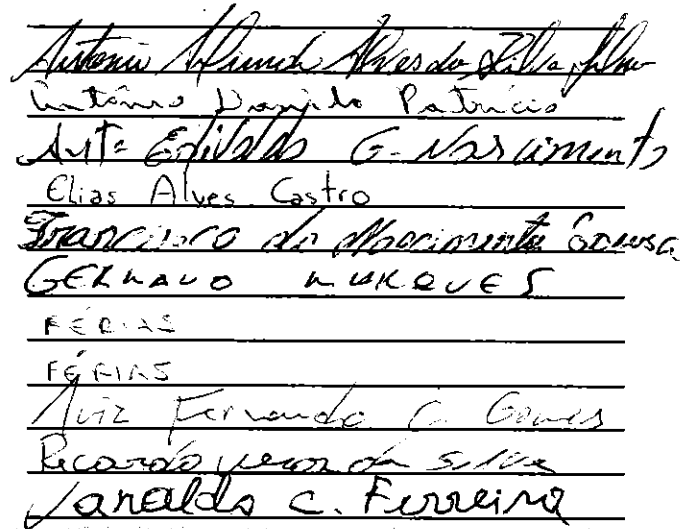 Antonio Alves da Silva Filho
Antônio Danilo Patrício
Antº Edivaldo G. Nascimento
Elias Alves Castro
Francisco do Nascimento Sousa
GERMANO MARQUES
FÉRIAS
FÉRIAS
Luiz Fernando C. Gomes
Ricardo da Silva
Janeildo C. Ferreira